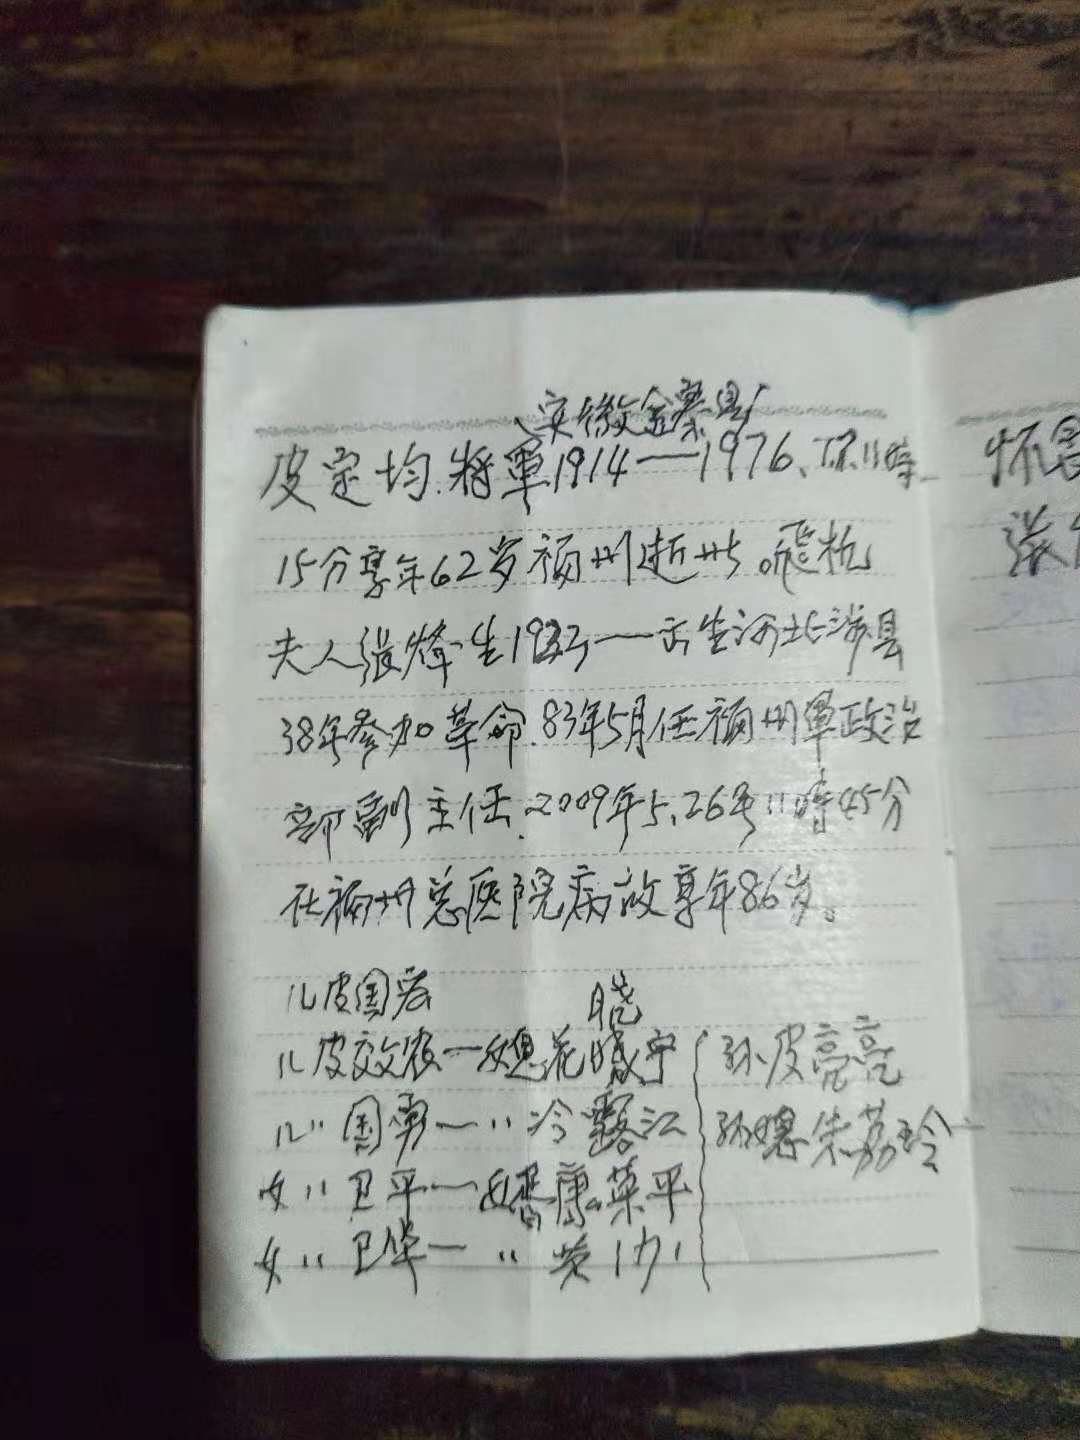 安徽金寨县
皮定均.将軍1914—1976、7.7.11時
15分享年62岁福州逝世。飛机
夫人張烽生1923—出生河北涉县
38年参加革命.83年5月任福州軍政治
部副主任.2009年5.26号11時45分
在福州总医院病故享年86岁。
儿皮国宏
晓
儿皮效农—媳花晓宁
儿〃国勇—〃冷露江
女〃卫平—婿康荣平
女〃卫华—〃黄
孙皮亮亮
孙媳朱荔玲
怀念
張